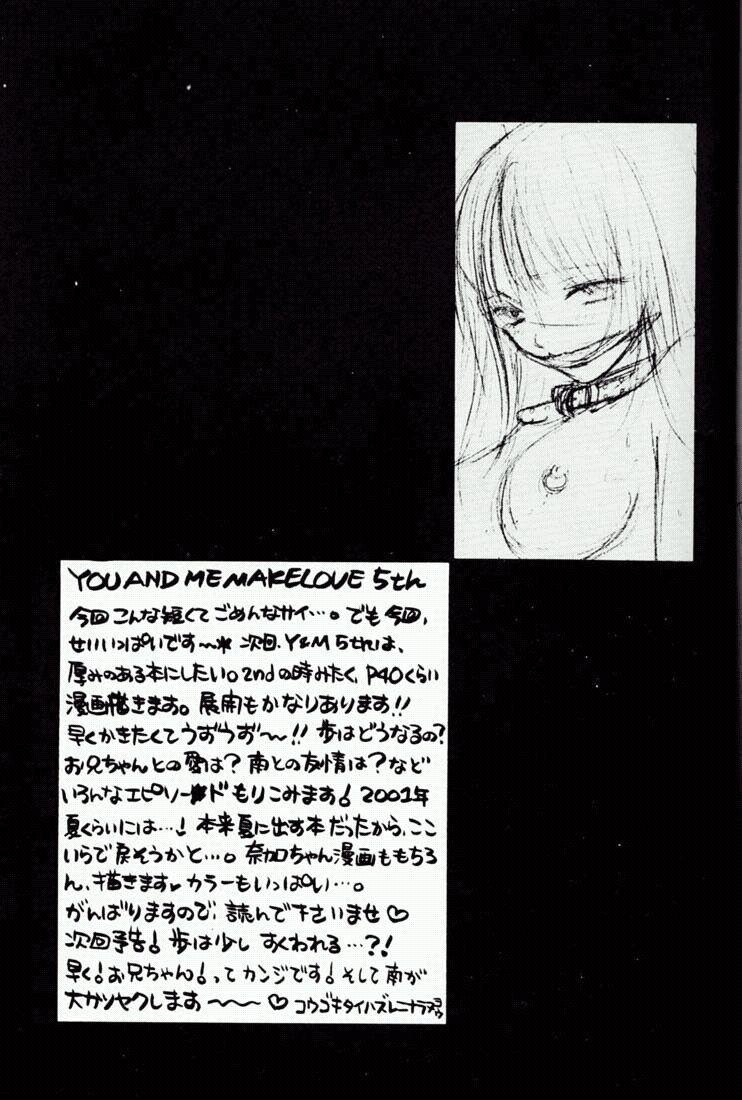 YOU AND ME MAKE LOVE 5th
今回こんな短くてごめんなサイ…。でも今回、
せいいっぱいです〜* 次回、Y&M 5thは、
厚みのある本にしたい。2ndの時みたく、P40くらい
漫画描きます。展開もかなりあります!!
早くかきたくてうずうず〜!! 歩はどうなるの?
お兄ちゃんとの愛は? 南との友情は? など
いろんなエピソードもりこみます! 2001年
夏くらいには…! 本来夏に出す本だったから、ここ
いらで戻そうかと…。奈加ちゃん漫画ももちろ
ん、描きます♥ カラーもいっぱい…。
がんばりますので、読んで下さいませ♡
次回予告! 歩は少しすくわれる…?!
早く!お兄ちゃん!ってカンジです! そして南が
大カツヤクします〜〜♡